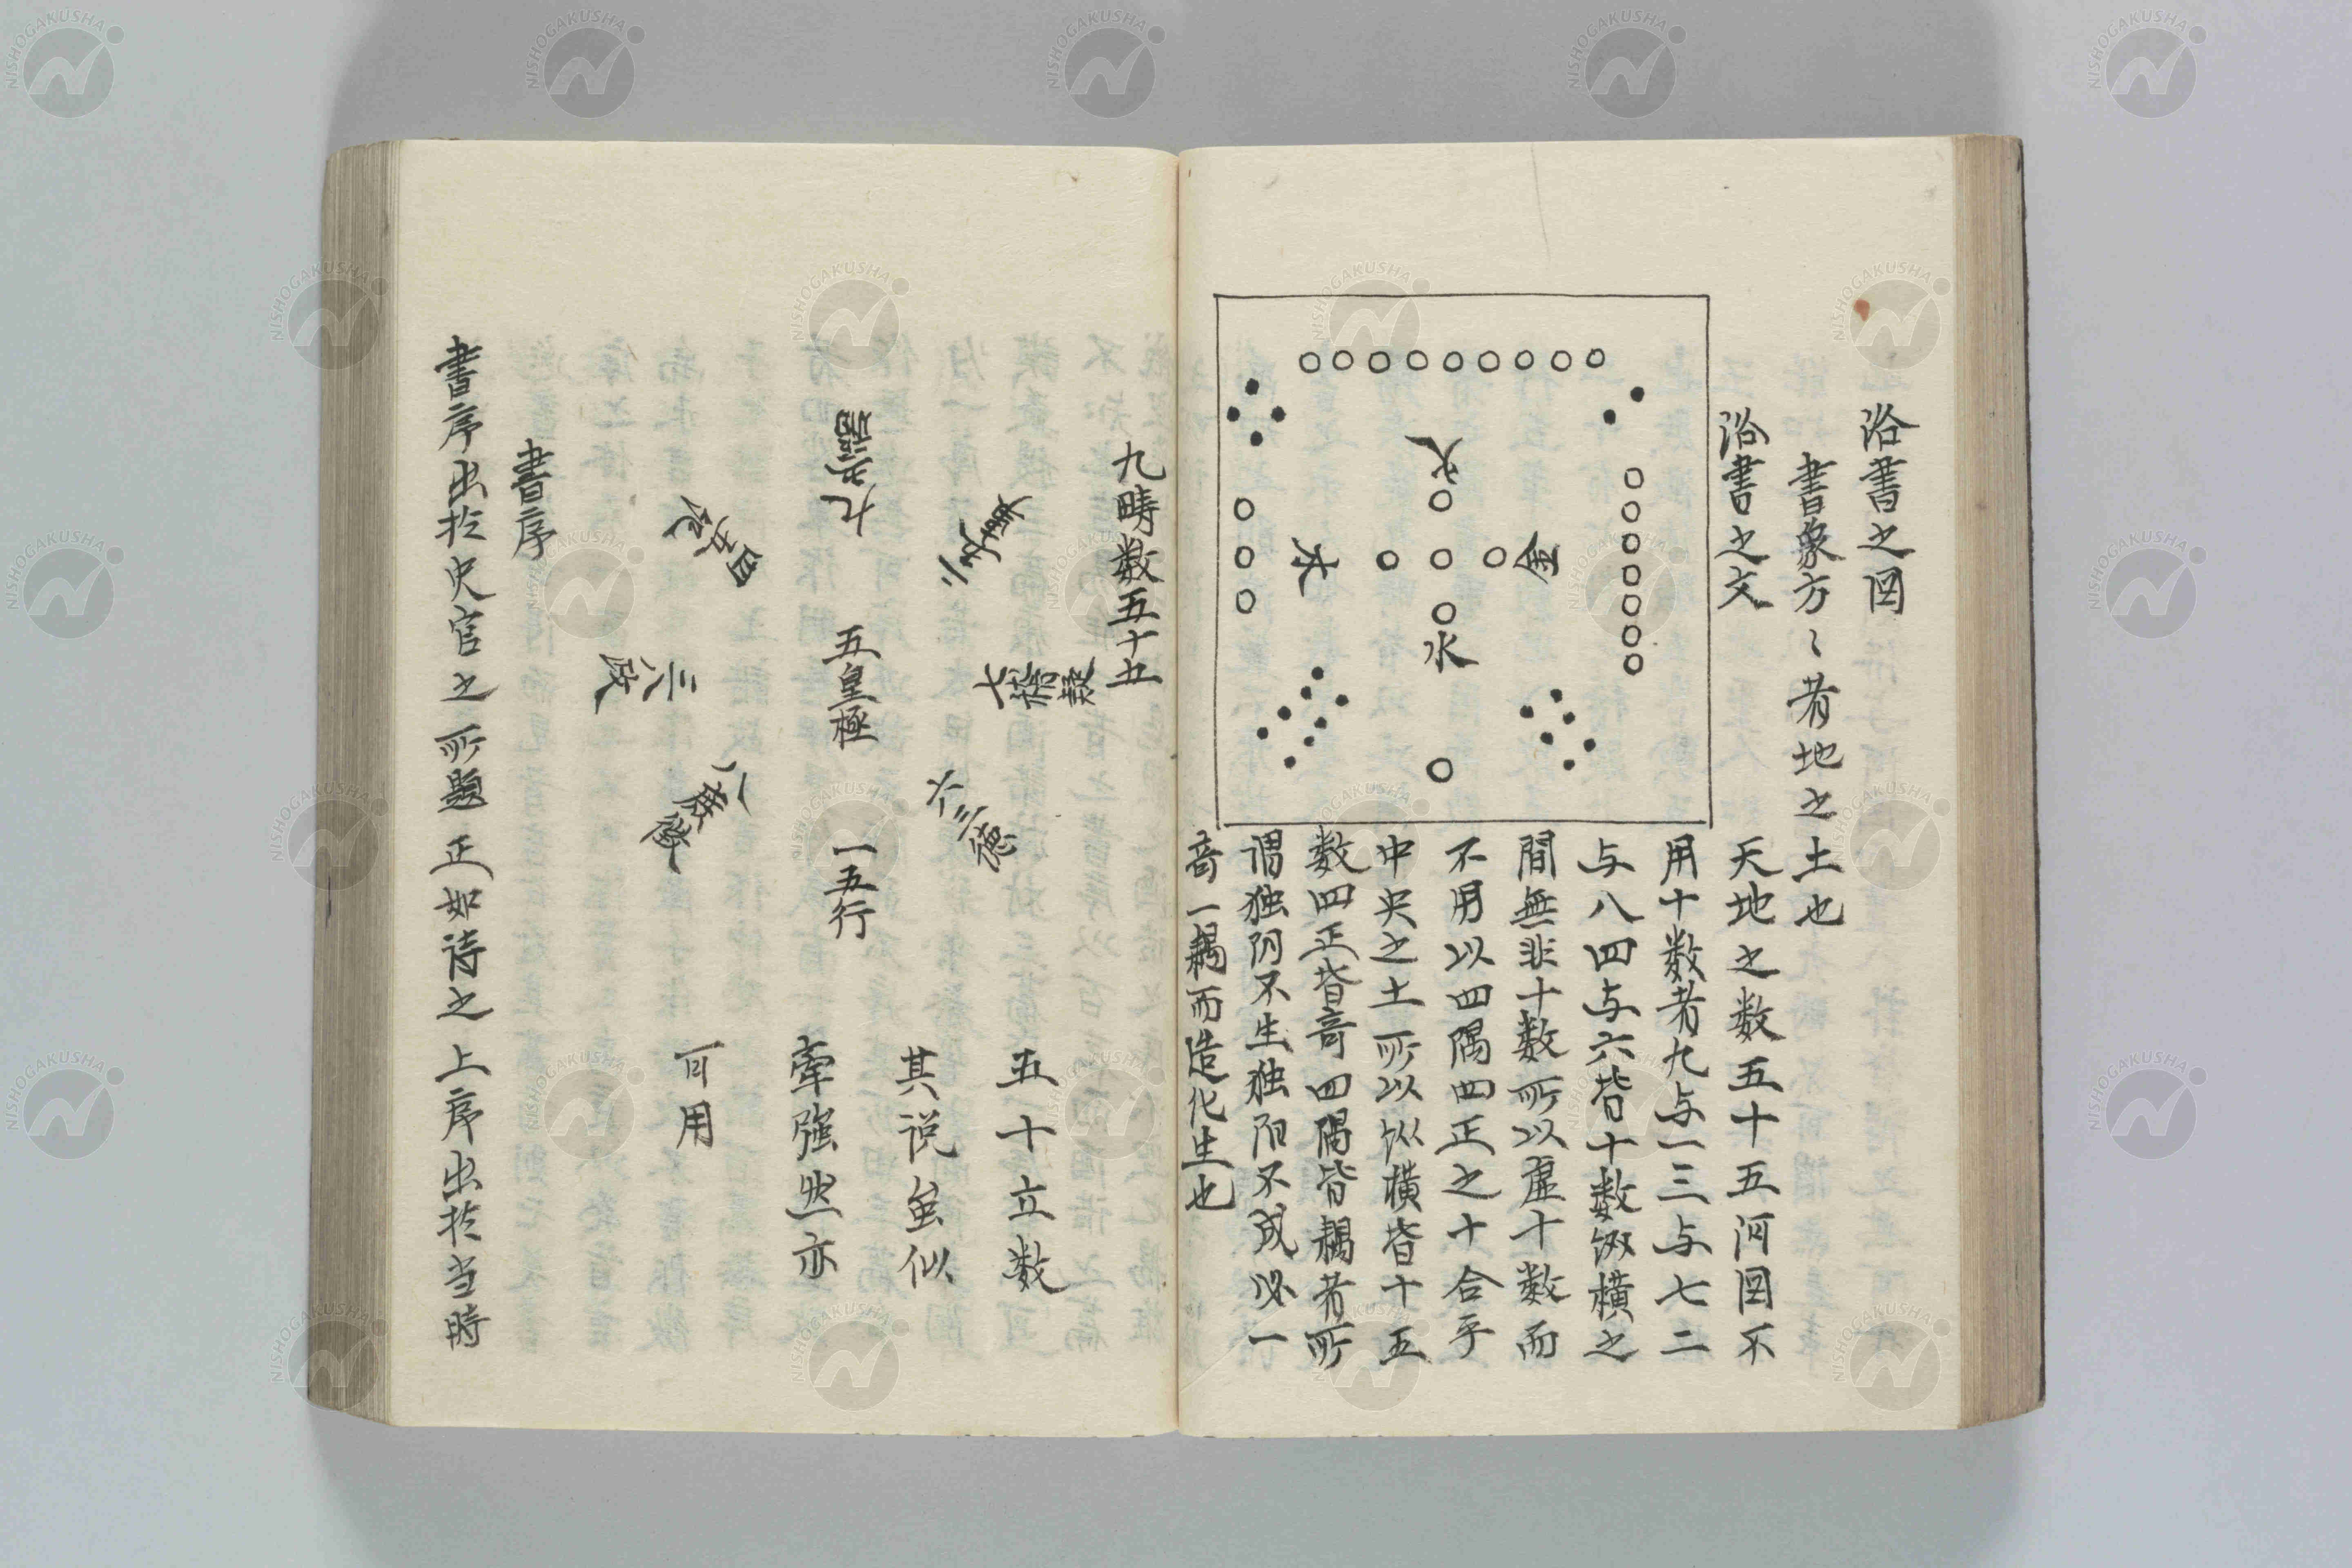 洛書之図
書象方〻者地之土也
洛書之文
天地之数五十五河図不
用十数者九与一三与七二
与八四与六皆十数縦横之
間無非十数所以虚十数而
不用以四隅四正之十合乎
中央之土所以縦横皆十五
数四正皆奇四隅皆耦者所
谓独阴不生独阳不成必一
奇一耦而造化生也
火
木
金
水
九畴数五十五
九 福
二五事
四五紀
七稽疑
五皇極
三八政
六三德
八庶徴
一五行
五十立数
其说虽似
牽強然亦
可用
書序
書序出於史官之所題正如詩之上序出於当時
NISHOGAKUSHA